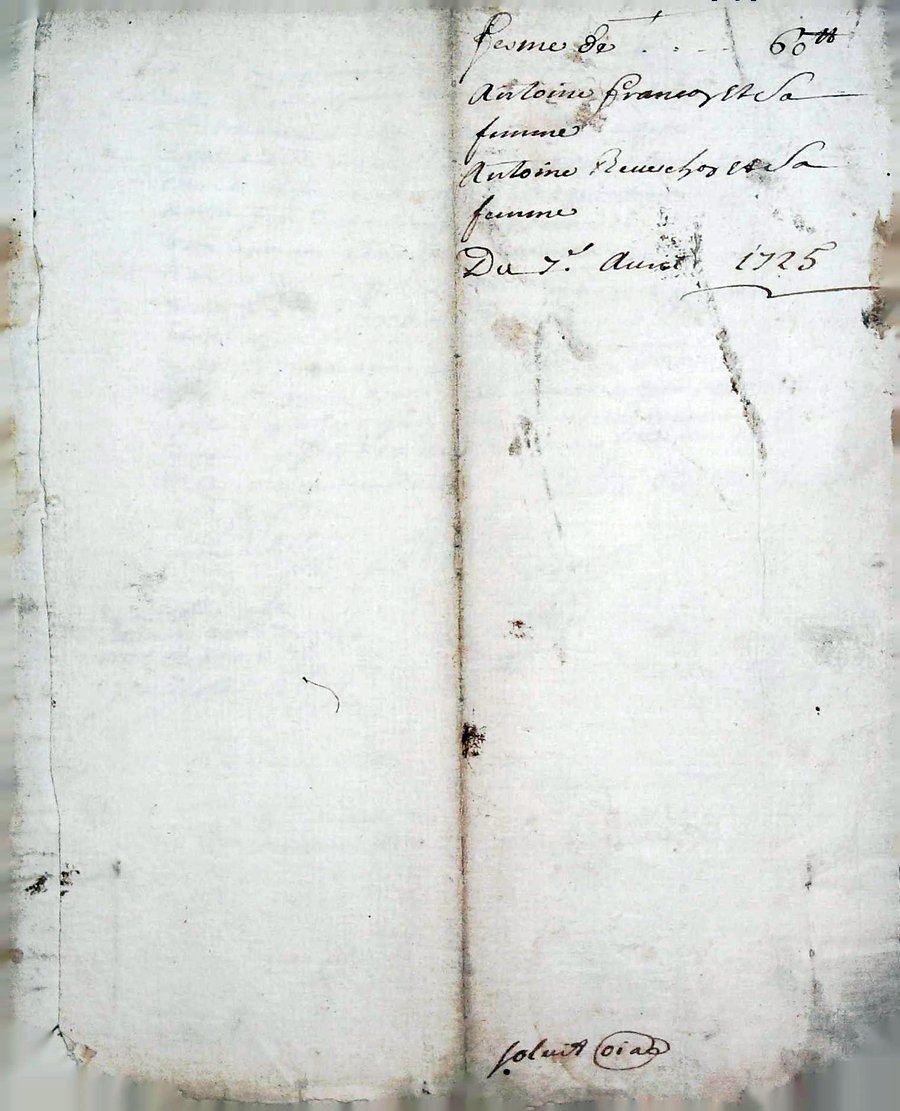 ferme de . . - - 60 ₶
Antoine francoz et Sa
femme
Antoine et Sa
femme
Du 7.e Auril 1725
soluit